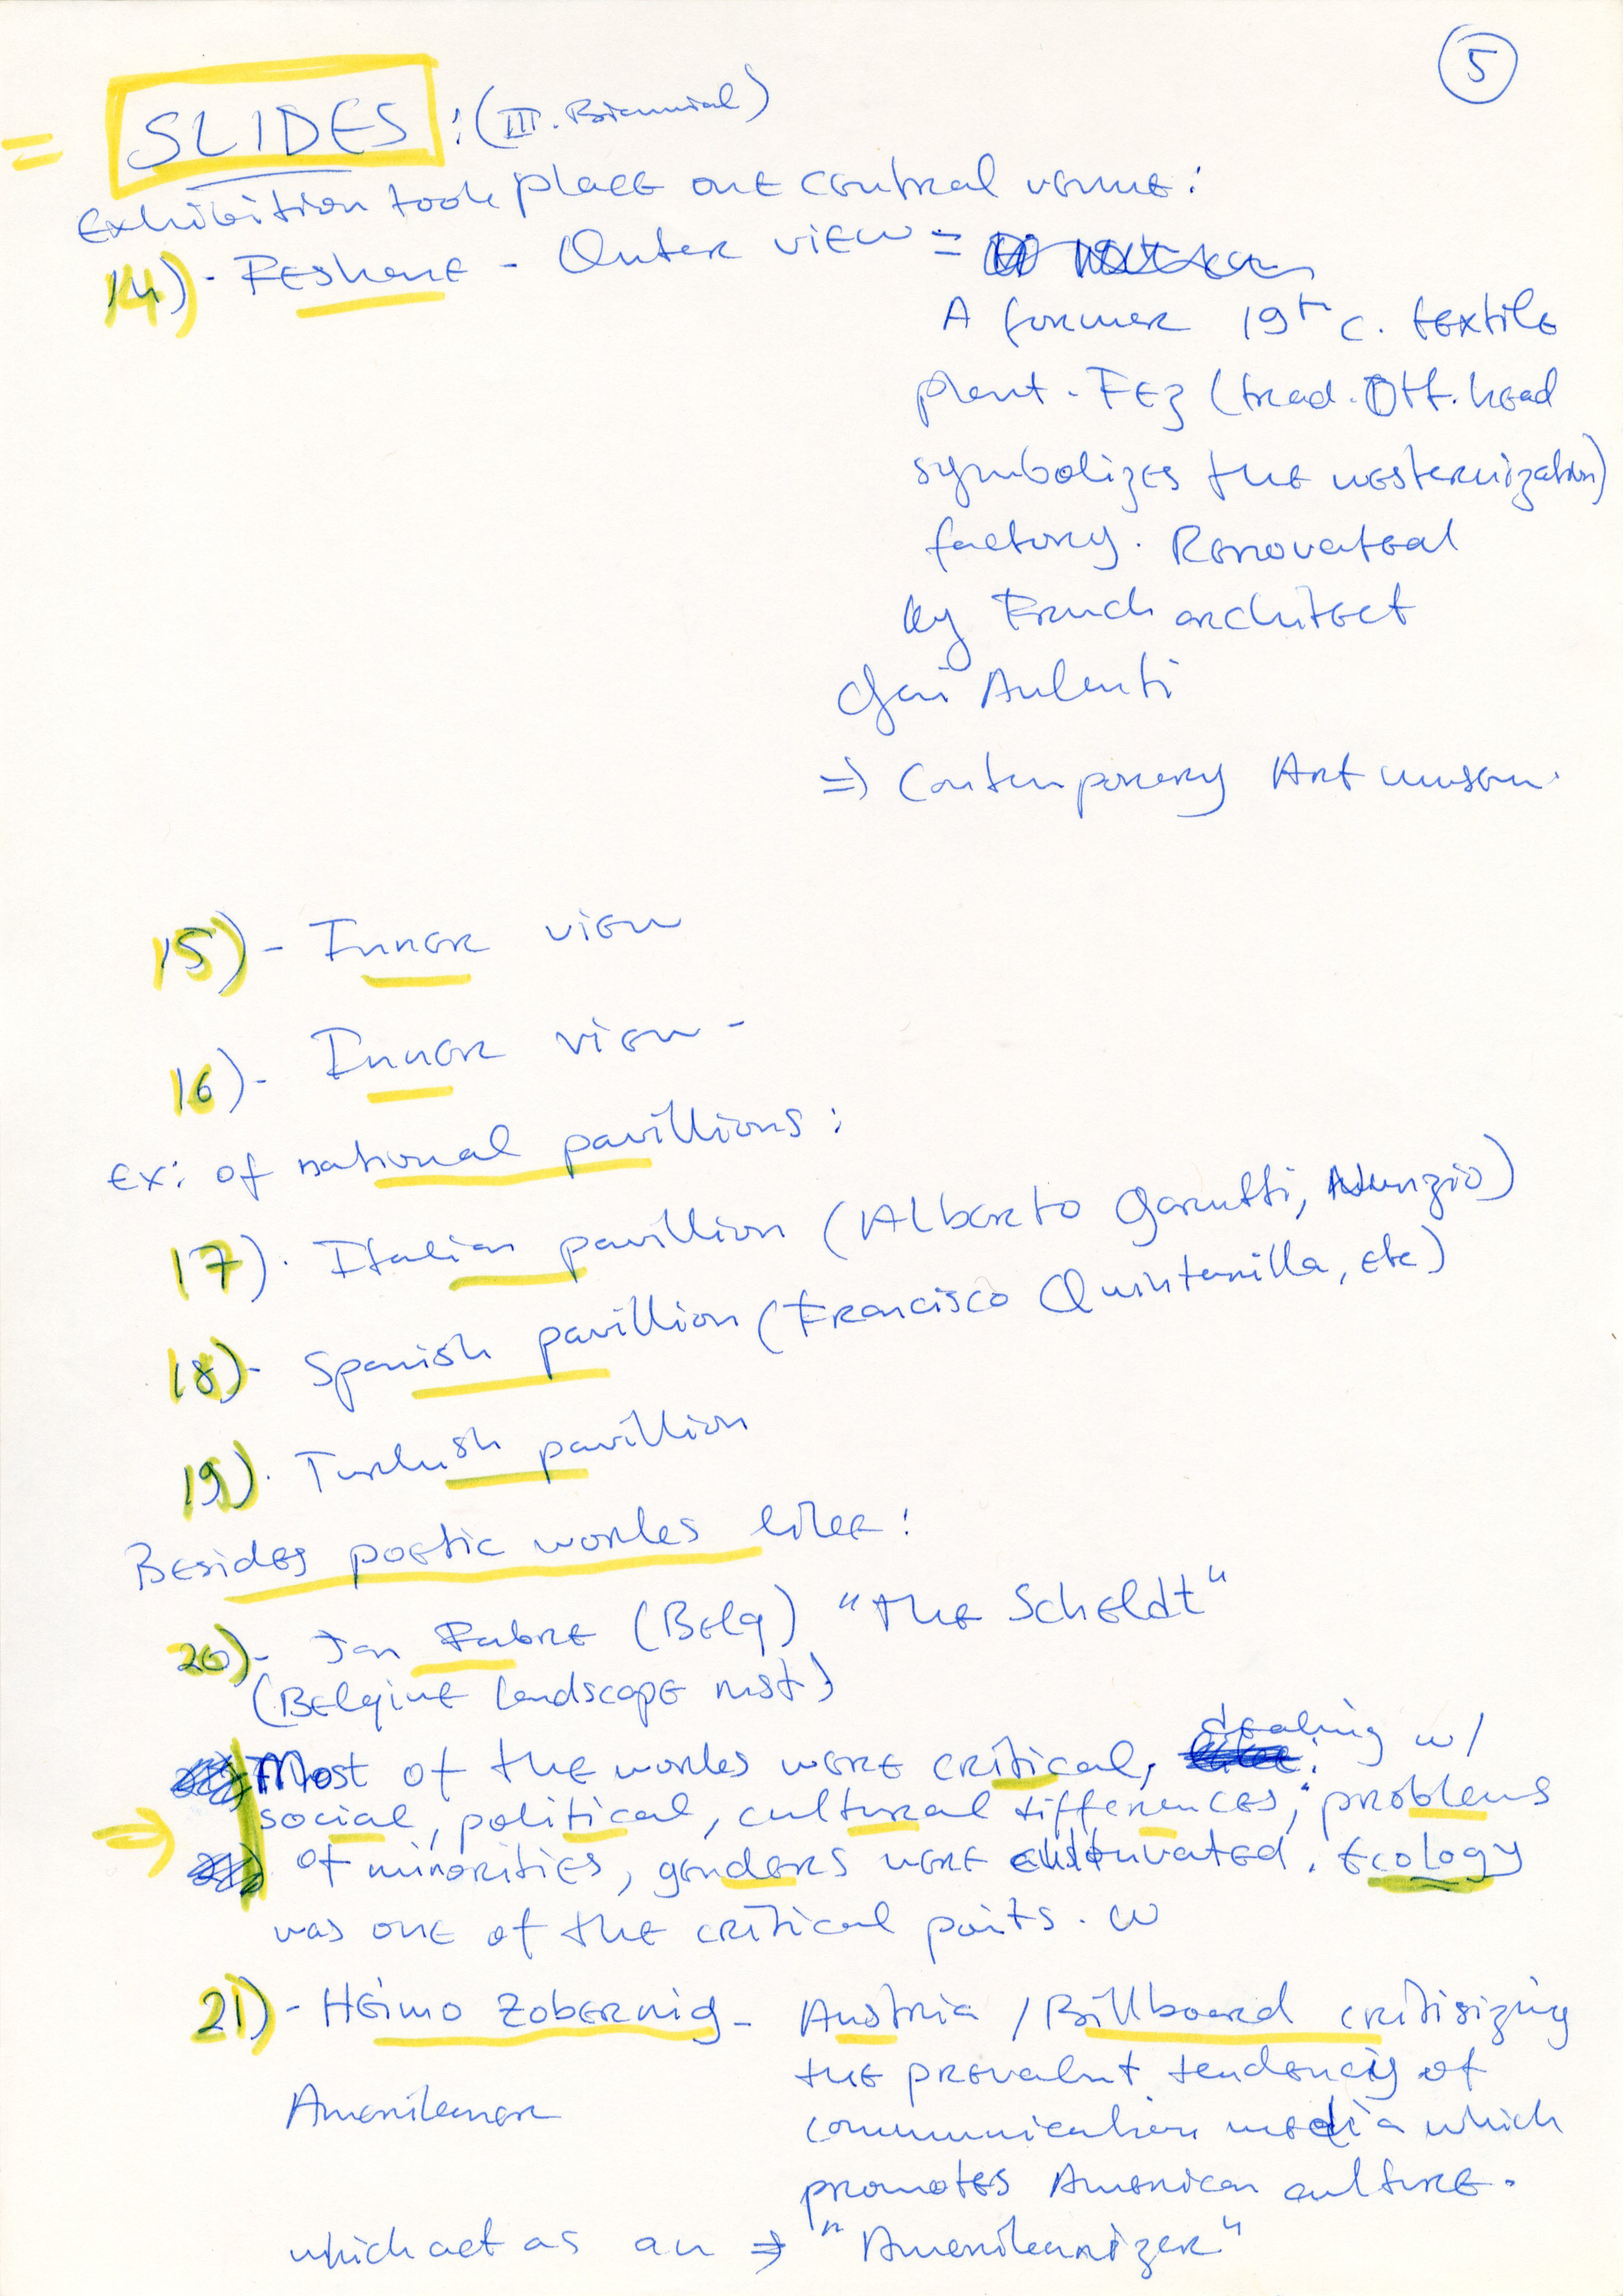 5
= SLIDES : (III. Biennial)
Exhibition took place one central venue :
14) - Feshane - Outer view =
A former 19th c. textile
plant. Fez (trad. Ott. head
symbolizes the westernization)
factory. Renovated
by French architect
Gai Aulenti
⇒ Contemporary Art museum.
15) - Inner view
16) - Inner view -
Ex: of national pavillions :
17). Italian pavillion (Alberto Garutti, Nunzio)
18)- Spanish pavillion (Francisco Quintanilla, etc)
19). Turkish pavillion
Besides poetic works like :
20)- Jan Fabre (Belg) "The Scheldt"
(Belgine landscape mst)
Most of the works were critical, dealing w/
⇒ social, political, cultural differences, problems
of minorities, genders were cultuvated. Ecology
was one of the critical poits. W
21) - Heimo Zobernig - Austria / Billboard critisizing
the prevalnt tendency of
Amerikaner
communication media which
promotes American culture.
which act as an ⇒ "Amerikanizer"